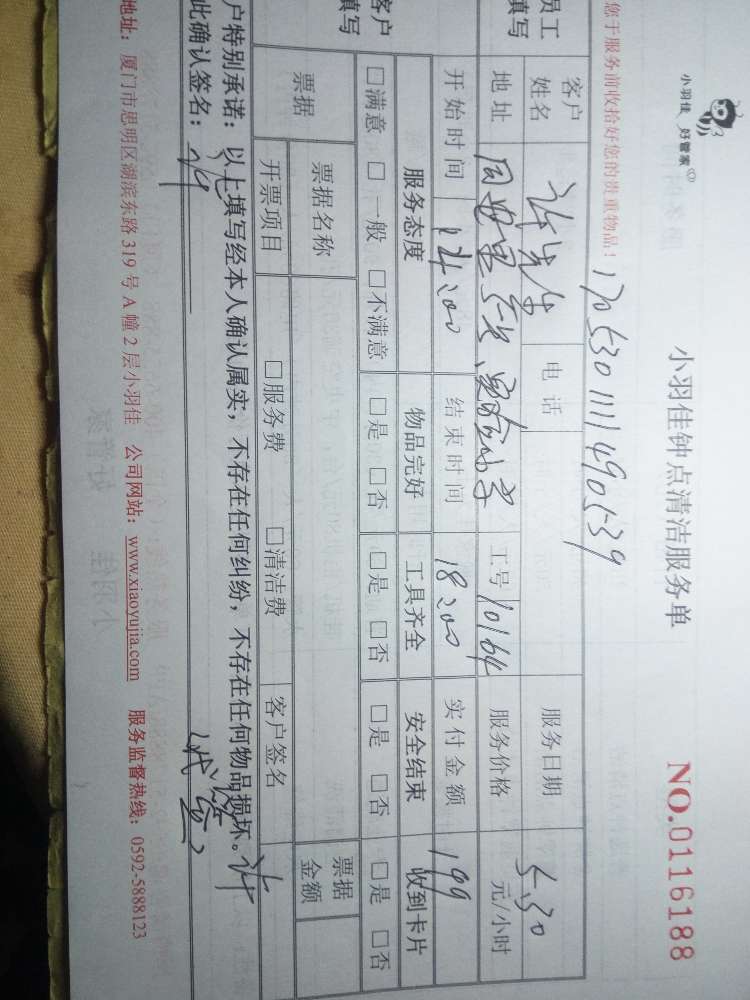 小羽佳 好管家
小羽佳钟点清洁服务单
NO.0116188
您于服务前收拾好您的贵重物品！
1705301111490539
员工
填写
客户
姓名
许先生
电话
服务日期
5.30
地址
工号
10164
服务价格
元/小时
开始时间
14:00
结束时间
18:00
实付金额
199
客户
填写
服务态度
物品完好
工具齐全
安全结束
收到卡片
□满意 □一般 □不满意
□是 □否
□是 □否
□是 □否
□是 □否
票据
票据名称
票据
金额
开票项目
□服务费
□清洁费
客户签名
户特别承诺：以上填写经本人确认属实，不存在任何纠纷，不存在任何物品损坏。
此确认签名：
地址：厦门市思明区湖滨东路 319 号 A 幢 2 层小羽佳 公司网站：www.xiaoyujia.com 服务监督热线：0592-5888123